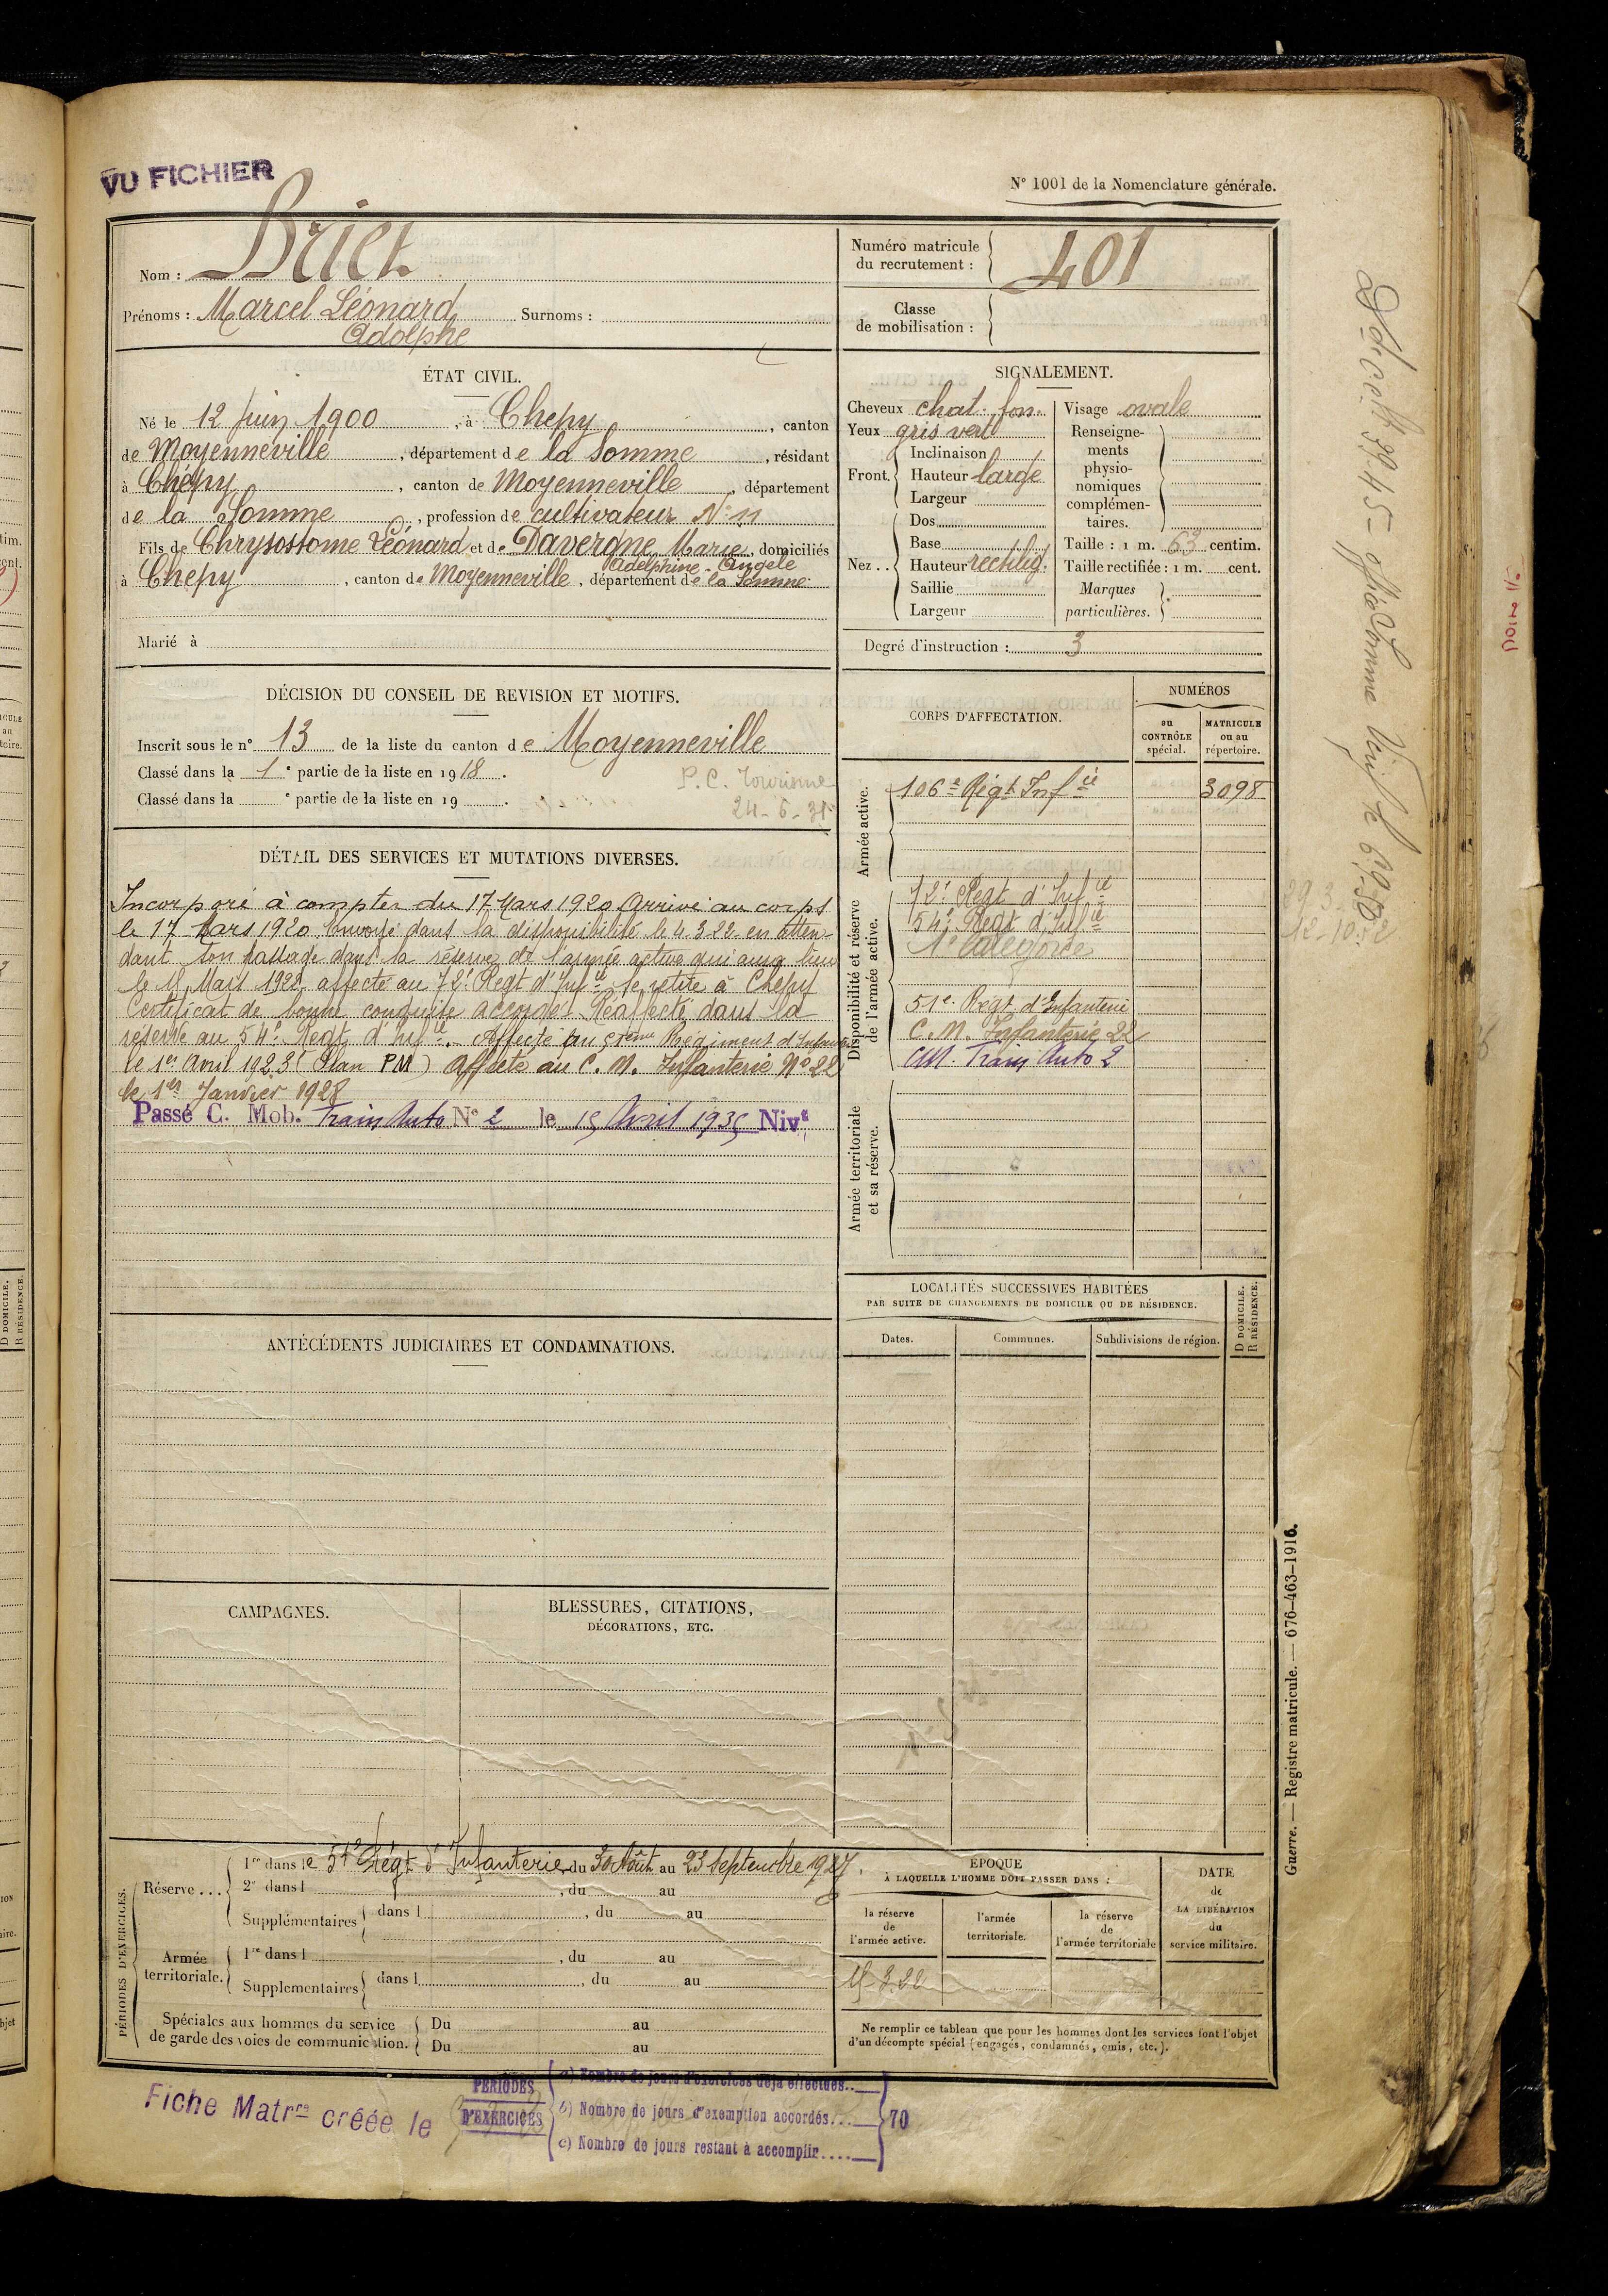 VU FICHIER
N° 1001 de la Nomenclature générale.
Nom : Briet
Prénoms : Marcel Léonard Surnoms :
Adolphe
Numéro matricule du recrutement : 401
Classe de mobilisation :
ÉTAT CIVIL.
Né le 12 Juin 1900, à Chepy, canton
de Moyenneville, département de la Somme, résidant
à Chépy, canton de Moyenneville, département
de la Somme, profession de cultivateur N° 11
Fils de Chrysostome Léonard et de Davergne Marie, domiciliés
Adelphine - Angèle
à Chepy, canton de Moyenneville, département de la Somme
Marié à
SIGNALEMENT.
Cheveux chat. fon.
Yeux gris vert
Front. Inclinaison
Hauteur large
Largeur
Nez .. Dos
Base
Hauteur rectilig.
Saillie
Largeur
Visage ovale
Renseigne-
ments
physio-
nomiques
complémen-
taires.
Taille : 1 m. 63 centim.
Taille rectifiée : 1 m. cent.
Marques
particulières.
Degré d'instruction : 3
DÉCISION DU CONSEIL DE REVISION ET MOTIFS.
Inscrit sous le n° 13 de la liste du canton de Moyenneville
Classé dans la 1e partie de la liste en 1918.
Classé dans la e partie de la liste en 19 .
P. C. Tourisme
CORPS D'AFFECTATION.
NUMÉROS
au CONTRÔLE spécial.
MATRICULE ou au répertoire.
Armée active.
106e Régt Infie 3098
Disponibilité et réserve de l'armée active.
72e Regt d'Infie
54e Regt d'Infie
1e Catégorie
51e Regt d'Infanterie
C. M. Infanterie 22
CM. Train Auto 2
Armée territoriale et sa réserve.
DÉTAIL DES SERVICES ET MUTATIONS DIVERSES.
Incorporé à compter du 17 Mars 1920 Arrivé au corps
le 17 Mars 1920 Envoyé dans la disponibilité le 4.3.22 en atten-
dant son passage dans la réserve de l'armée active qui aura lieu
le 15 Mars 1922 affecté au 72e Regt d'Infie se retire à Chepy
Certificat de bonne conduite accordé. Réaffecté dans la
réserve au 54e Regt d'Infie. Affecté au 51ème Régiment d'Infanterie
le 1er Avril 1923 (Plan PM) Affecté au C. M. Infanterie N° 22
le 1er Janvier 1928
Passé C. Mob. Train Auto N° 2 le 15 Avril 1935 Nivt
LOCALITÉS SUCCESSIVES HABITÉES
PAR SUITE DE CHANGEMENTS DE DOMICILE OU DE RÉSIDENCE.
Dates.
Communes.
Subdivisions de région.
D DOMICILE.
R RÉSIDENCE.
ANTÉCÉDENTS JUDICIAIRES ET CONDAMNATIONS.
CAMPAGNES.
BLESSURES, CITATIONS,
DÉCORATIONS, ETC.
PÉRIODES D'EXERCICES.
Réserve ... 1re dans le 51e Régt d'Infanterie, du 30 Août au 23 Septembre 1927.
2e dans l , du au
Supplémentaires dans l , du au
Armée territoriale. 1re dans l , du au
Supplémentaires dans l , du au
Spéciales aux hommes du service Du au
de garde des voies de communication. Du au
ÉPOQUE
À LAQUELLE L'HOMME DOIT PASSER DANS :
la réserve de l'armée active.
l'armée territoriale.
la réserve de l'armée territoriale
DATE de LA LIBÉRATION du service militaire.
15-3.22
Ne remplir ce tableau que pour les hommes dont les services font l'objet
d'un décompte spécial (engagés, condamnés, omis, etc.).
Guerre. — Registre matricule. — 676-463-1916.
Fiche Matrre créée le
PÉRIODES D'EXERCICES
a) Nombre de jours d'exercices déjà effectués..
b) Nombre de jours d'exemption accordés...
c) Nombre de jours restant à accomplir....
70